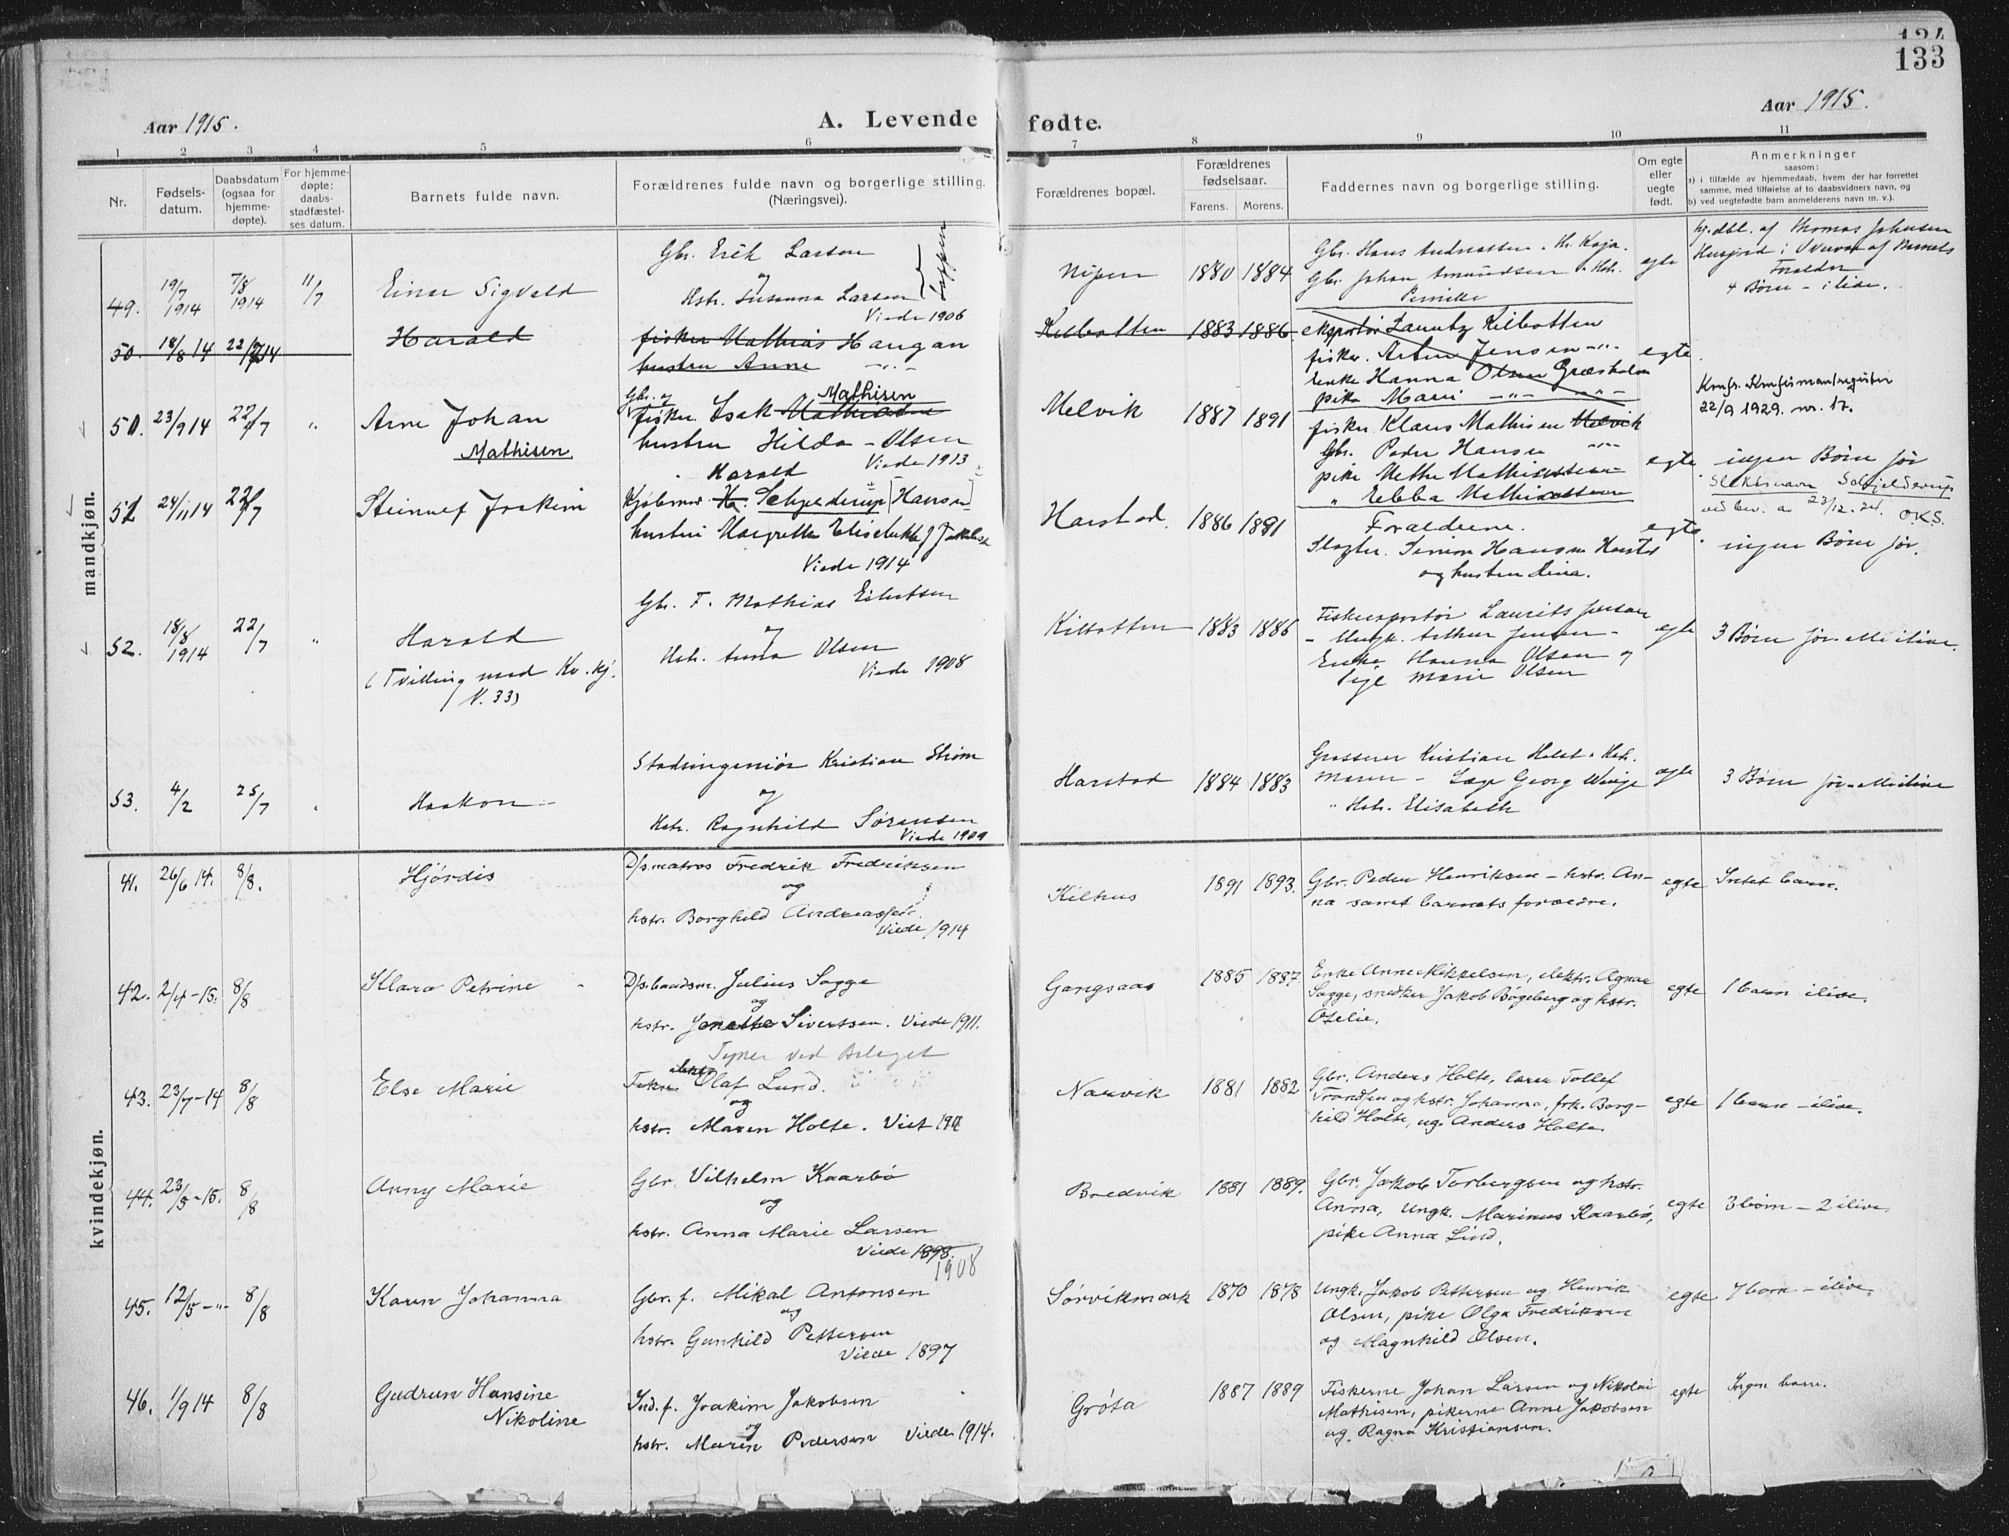 133
Aar 1915.
A. Levende fødte.
Aar 1915.
1 2 3 4 5 6 7 8 9 10 11
Nr.
Fødsels-
datum.
Daabsdatum
(ogsaa for
hjemme-
døpte).
For hjemme-
døpte:
daabs-
stadfæstel-
ses datum.
Barnets fulde navn.
Forældrenes fulde navn og borgerlige stilling.
(Næringsvei).
Forældrenes bopæl.
Forældrenes
fødselsaar.
Farens. Morens.
Faddernes navn og borgerlige stilling.
Om egte
eller
uegte
født.
Anmerkninger
saasom:
a) i tilfælde av hjemmedaab, hvem der har forrettet
samme, med tilføielse af to daabsvidners navn, og
b) ved uegtefødte barn anmelderens navn m. v.).
mandkjøn.
49. 19/7 1914 7/8 1914 11/7
Einar Sigvald
Gbr. Erik Larsen
og
Hstr. Susanna Larsen
Viede 1906
Nipen 1880 1884
Gbr. Johan Amundsen
Pernille
egte
hj.dbt. af Thomas Johnsen
Forældre
4 Børn - ilive.
50. 18/8 14 22/7 14
Harald
fisker Mathias Haugan
hustru Anne -"-
Kilbotten 1883 1886
eksportør Lauritz Kilbotten
fisker Artur Jensen -"-
enke Hanna Olsen Græsholm
pike Marie -"- -"-
egte
50. 23/9 14 22/7 "
Arne Johan
Mathisen
Gbr. og Mathisen
fisker Isak
hustru Hilda - Olsen
Viede 1913
Melvik 1887 1891
fisker Klaus Mathisen Melvik
Gbr. Peder Hansen -"-
pike Mette Mathiassen
" Ebba Mathiassen
egte
Konfr. Konfirmantregister
22/9 1929. nr. 17.
ingen Børn før
51. 24/11 14 22/7
Steinulf Joakim
Harald
Kjøbmand H. Schjelderup (Hansen)
hustru Margrethe Elisebeth J Jakobsen
Viede 1914
Harstad. 1886 1891
Forældrene.
Slagter Simon Hansen Harstad
og hustru Dina.
egte.
Slektsnavn Schjelderup
ved bev. av 23/12. O.K.S.
ingen Børn før.
52. 18/8 1914 22/7 "
Harald
(Tvilling med Kv. kj.
N. 33)
Gbr. F. Mathias Eilertsen
og
Hstr. Anna Olsen
Viede 1908
Kilbotten 1883 1886
Fiskeexportør Laurits Jensen
- Ungk. Arthur Jensen -
Enke Hanna Olsen og
Pige Marie Olsen
egte
3 Børn før. Alle ilive.
53. 4/2 25/7
Haakon -
Stadsingeniør Kristian Strøm
og
Hstr. Ragnhild Sørensen
Viede 1909
Harstad 1884 1883
Grosserer Kristian Holst & Hstr.
- Læge Georg
" Hstr. Elisabeth
egte
3 Børn før. Alle ilive
kvindekjøn.
41. 26/6 14. 8/8.
Hjørdis
D/s.matros Fredrik Fredriksen
og
hstr. Borghild Andreassen.
Viede 1914
Kilhus 1891 1893.
Gbr. Peder Henriksen - hstr. An-
na samt barnets forældre.
egte
Intet barn.
42. 2/4-15. 8/8
Klara Petrine
D/s.baadsm. Julius Sagge
og
hstr. Jenette Sivertsen. Viede 1911.
Gangsaas 1885 1887.
Enke Anne Mikkelsen, elektr. Agnar
Sagge, snedker Jakob Bøgeberg og hstr.
Otelie.
egte
1 barn ilive.
43. 23/7-14 8/8
Else Marie
Olaf Lund.
og
hstr. Maren Holte. Viet 1911
Narvik 1881 1882
Gbr. Anders Holte, lærer Tollef
Trondsen og hstr. Johanna, frk. Borg-
hild Holte, ug. Anders Holte.
egte
1 barn - ilive.
44. 23/5-15. 8/8
Anny Marie
Gbr. Vilhelm Kaarbø
og
hstr. Anna Marie Larsen
Viede 1898.
1908
Bredvik 1881 1889.
Gbr. Jakob Torbergsen og hstr.
Anna, ungk. Marinus Kaarbø,
pike Anna Lind.
egte
3 børn - 2 ilive.
45. 12/5 -"- 8/8
Karen Johanna
Gbr. f. Mikal Antonsen
og
hstr. Gunhild Pettersen
Viede 1897
Sørvikmark 1870 1878
Ungk. Jakob Pettersen og Henrik
Olsen, pike Olga Fredriksen
og Magnhild Olsen.
egte
7 barn - ilive.
46. 1/9 14 8/8
Gudrun Hansine
Nikoline
Ind. f. Joakim Jakobsen
og
hstr. Maren Pedersen Viede 1914.
Grøta 1887 1889
Fiskerne Johan Larsen og Nikolai
Mathisen, pikerne Anne Jakobsen
og Ragna Kristiansen.
egte
Ingen barn.